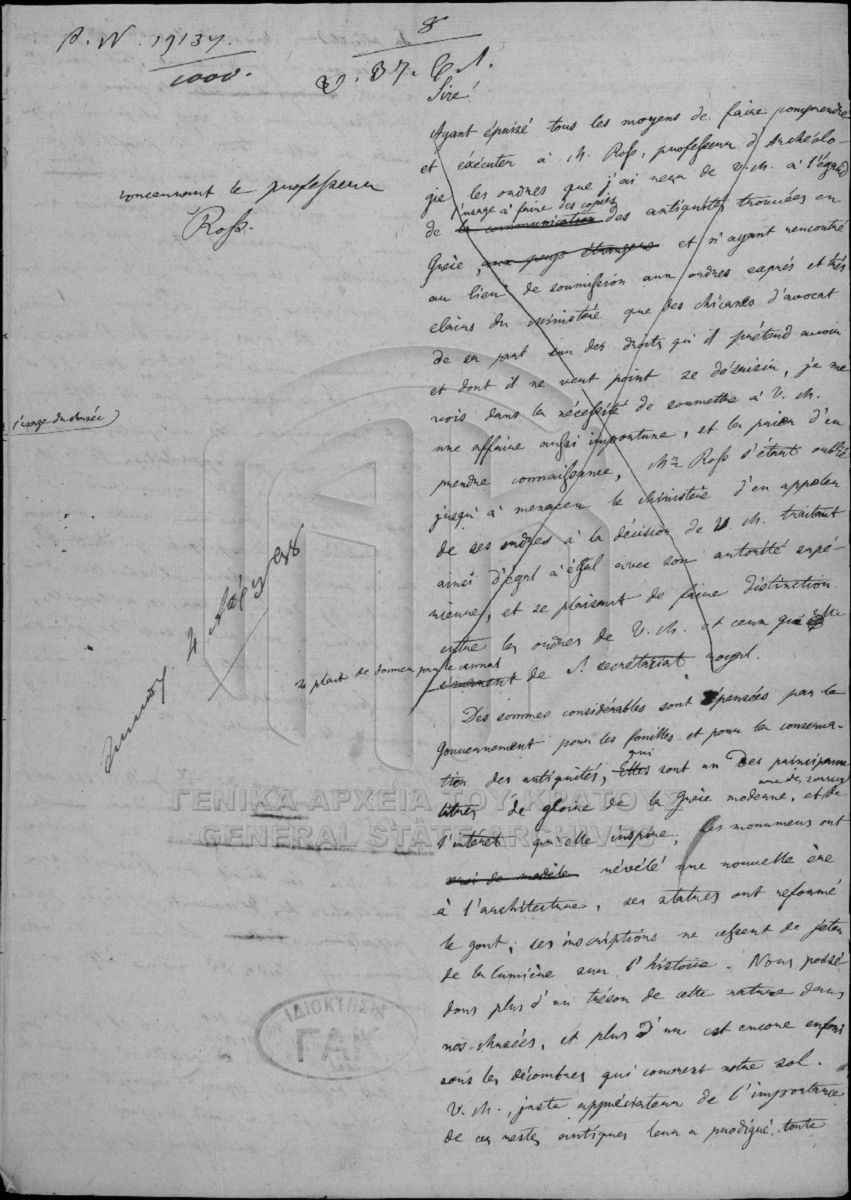 P. N. 19137.
1000.
8
Sire!
concernant le professeur
Ross.
Ayant épuisé tous les moyens de faire comprendre
et exécuter à M. Ross, professeur d'Archéolo-
gie les ordres que j'ai reçu de V. M. à l'égard
l'usage à faire des copies
de la communication des antiquités trouvées en
Grèce, aux pays étrangers et n'ayant rencontré
au lieu de soumission aux ordres exprés et très
clairs du ministère que des chicanes d'avocat
de sa part sur des droits qu'il prétend avoir
et dont il ne veut point se désaisir, je me
vois dans la nécessité de soumettre à V. M.
une affaire aussi importune, et la prier d'en
prendre connaissance, Mr Ross s'étant oublié
jusqu'à menacer le Ministère d'en appeler
de ses ordres à la décision de V. M. traitant
ainsi d'égal à égal avec son autorité supé-
rieure, et se plaisant de faire distinction
entre les ordres de V. M. et ceux qu'elle
se plait de donner par le canal
émanent de S. secrétariat royal.
l'usage du Musée
4
Des sommes considérables sont dépensées par le
Gouvernement pour les fouilles et pour la conserva-
tion des antiquités, Elles qui sont un des principaux
titres de gloire de la Grèce moderne, et de
une des sources
l'intérêt qu'elle inspire, Les monumens ont
révélé une nouvelle ère
à l'architecture, ses statues ont reformé
le gout; ses inscriptions ne cessent de jeter
de la lumière sur l'histoire. Nous possé
dons plus d'un trésor de cette nature dans
nos Musées, et plus d'un est encore enfoui
sous les décombres qui couvrent notre sol.
V. M. juste appréciateur de l'importance
de ces restes antiques leur a prodigué toute
ΓΕΝΙΚΑ ΑΡΧΕΙΑ ΤΟΥ ΚΡΑΤΟΥΣ
GENERAL STATE ARCHIVES
ΙΔΙΟΚΤΗΣΙΑ
ΓΑΚ